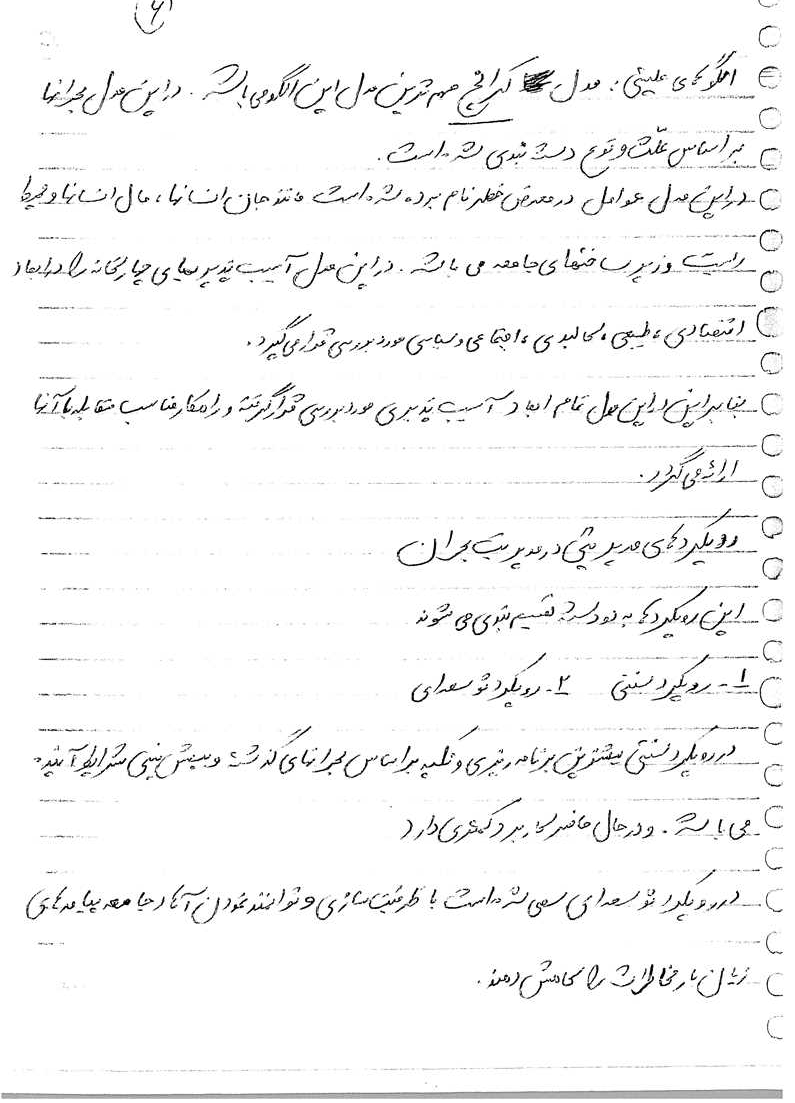 ۶
الگوهای علیتی: مدل کرانچ مهم ترین مدل این الگو می باشد. در این مدل بحرانها
بر اساس علت وقوع دسته بندی شده است.
در این مدل عوامل در معرض خطر نام برده شده است مانند جان انسانها، مال انسانها و محیط
زیست و زیرساختهای جامعه می باشد. در این مدل آسیب پذیریهای چهارگانه را در ابعاد
اقتصادی، طبیعی، کالبدی، اجتماعی و سیاسی مورد بررسی قرار می گیرد.
بنابراین در این مدل تمام ابعاد آسیب پذیری مورد بررسی قرار گرفته و راهکار مناسب مقابله با آنها
ارائه می گردد.
رویکردهای مدیریتی در مدیریت بحران
این رویکردها به دو دسته تقسیم بندی می شوند
۱- رویکرد سنتی ۲- رویکرد توسعه ای
در رویکرد سنتی بیشترین برنامه ریزی و تکیه بر اساس بحرانهای گذشته و پیش بینی شرایط آینده
می باشد. و در حال حاضر کاربرد کمتری دارد
در رویکرد توسعه ای سعی شده است با ظرفیت سازی و توانمند نمودن آحاد جامعه پیامدهای
زیان بار مخاطرات را کاهش دهند.